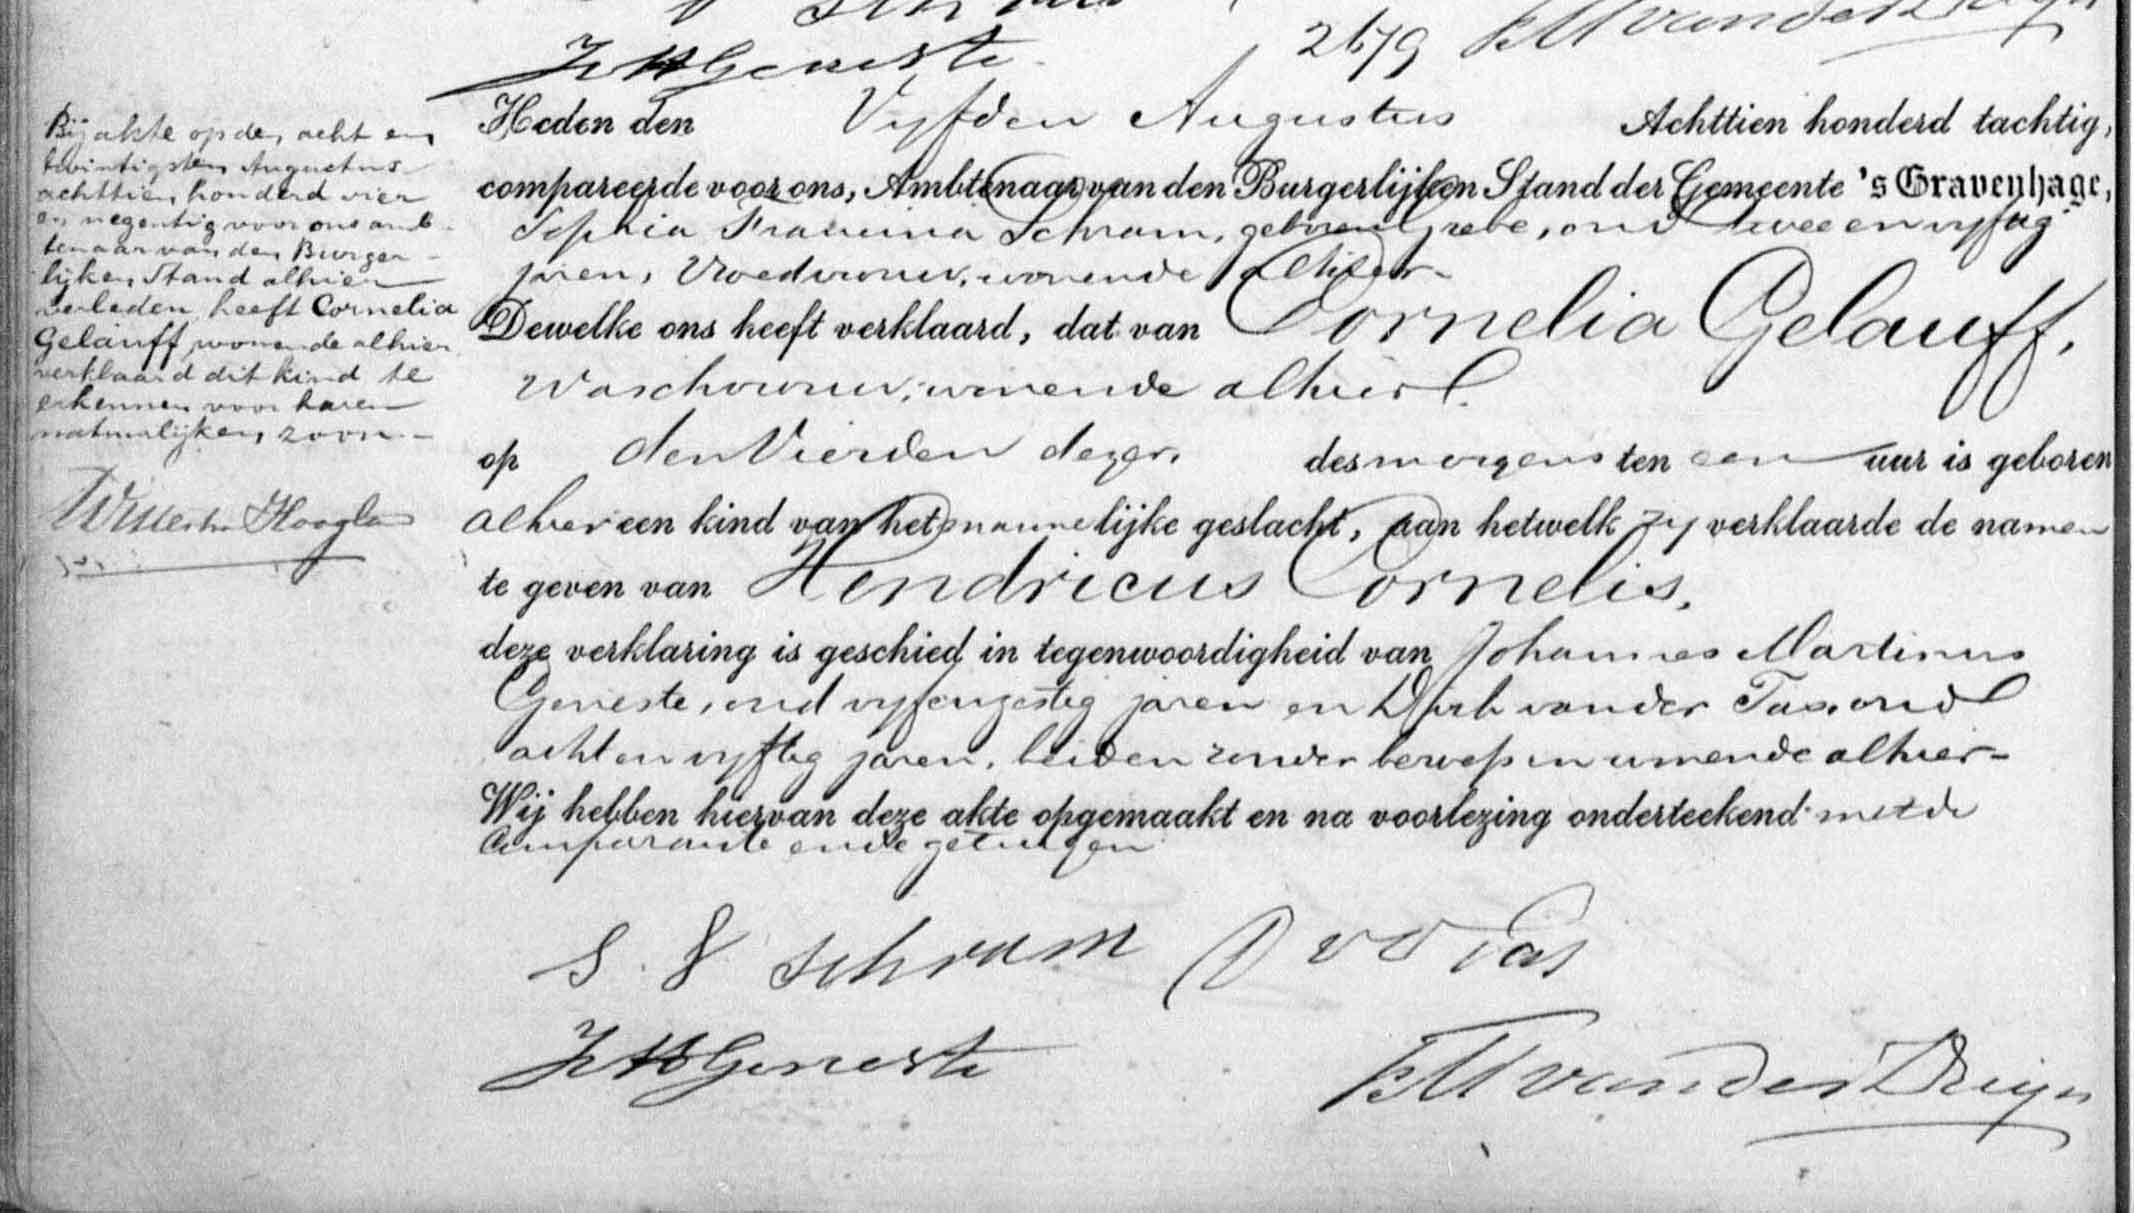 JMGeneste
2679
Heden den Vyfden Augustus Achttien honderd tachtig,
compareerde voor ons, Ambtenaar van den Burgerlijken Stand der Gemeente 's Gravenhage,
Sophia Francina Schram, geboren Grebe, oud twee en vyftig
jaren, Vroedvrouw, wonende alhier
Dewelke ons heeft verklaard, dat van Cornelia Gelauff,
Waschvrouw, wonende alhier
op den Vierden dezer, des morgens ten een uur is geboren
alhier een kind van het mannelijke geslacht, aan hetwelk zy verklaarde de namen
te geven van Hendricus Cornelis,
deze verklaring is geschied in tegenwoordigheid van Johannes Martinus
Geneste, oud vyfenzestig jaren en Dirk vander Tas, oud
acht en vyftig jaren, beiden zonder beroep en wonende alhier
Wij hebben hiervan deze akte opgemaakt en na voorlezing onderteekend met de
Comparante en de getuigen
S. F Schram D v d Tas
JMGeneste
Bij akte op den acht en
twintigsten Augustus
achttien honderd vier
en negentig voor ons amb-
tenaar van den Burger-
lijken Stand alhier
verleden, heeft Cornelia
Gelauff, wonende alhier
verklaard dit kind te
erkennen voor haren
natuurlijken zoon.-